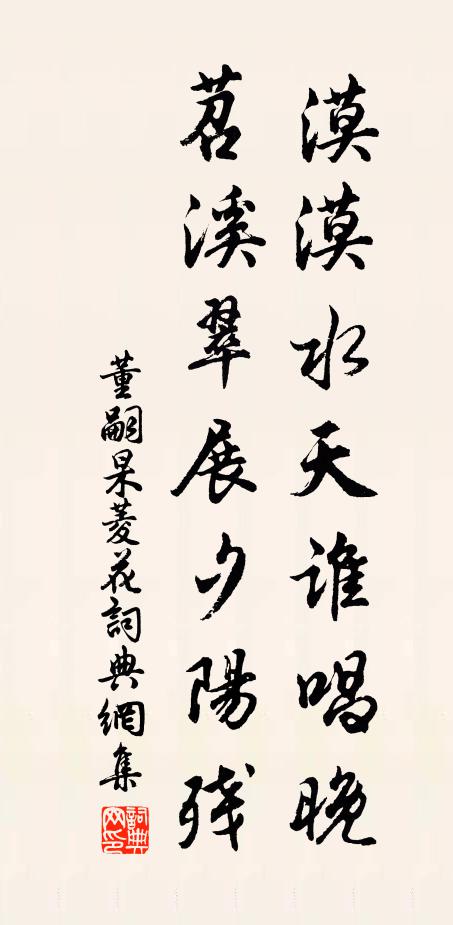 漠漠水天谁唱晚
苕溪翠展夕陽残
董嗣杲菱花詞典網集
詞典网印